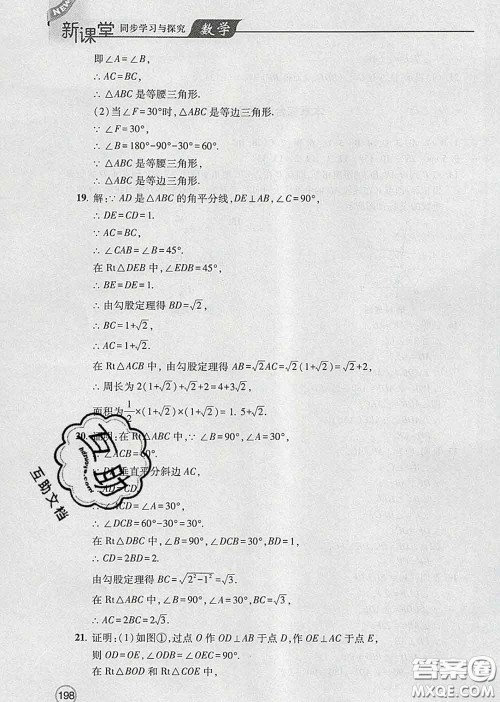 NEW
新课堂 同步学习与探究 数学
即∠A=∠B,
∴ AC=BC,
∴ △ABC 是等腰三角形.
(2)当∠F=30°时,△ABC 是等边三角形.
∵ ∠F=30°,
∴ ∠B=180°-90°-30°=60°.
∵ △ABC 是等腰三角形,
∴ △ABC 是等边三角形.
19. 解:∵ AD 是△ABC 的角平分线,DE⊥AB,∠C=90°,
∴ DE=CD=1.
∵ AC=BC,
∴ ∠CAB=∠B=45°.
在 Rt△DEB 中,∠EDB=45°,
∴ BE=DE=1.
∴ 由勾股定理得 BD=√2,
∴ BC=1+√2,
∴ AC=1+√2.
在 Rt△ACB 中,由勾股定理得 AB=√2AC=√2(1+√2)=√2+2,
∴ 周长为 2(1+√2)+√2+2=4+3√2,
面积为1/2×(1+√2)×(1+√2)=1.5+√2.
20. 证明:在 Rt△ABC 中,∠B=90°,
垂直平分斜边 AC,
∴ AD=CD,
∴ ∠DCB=60°-30°=30°.
在 Rt△DBC 中,∠B=90°,∠DCB=30°,
∴ CD=2BD=2.
由勾股定理得 BC=√2²-1²=√3.
在 Rt△ABC 中,
∴ AC=2BC=2√3.
21. 证明:(1)如图①,过点 O 作 OD⊥AB 于点 D,作 OE⊥AC 于点 E,
则 OD=OE,∠ODB=∠OEC=90°.
在 Rt△BOD 和 Rt△COE 中,
198
互助
互助文档
答案圈
MXQE.COM